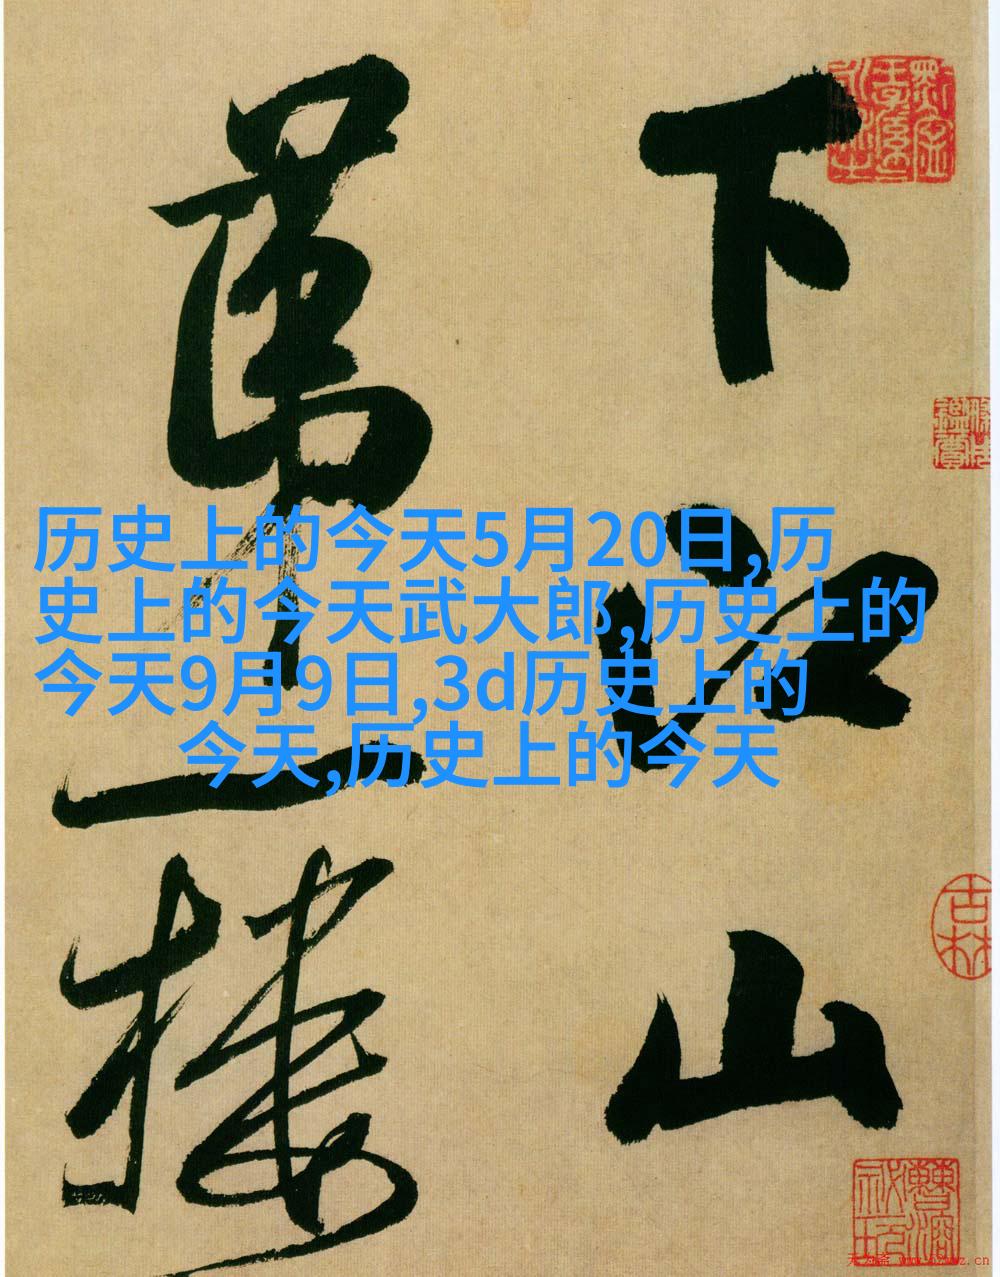 下江山
第一樓
历史上的今天5月20日,历
史上的今天武大郎,历史上的
今天9月9日,3d历史上的
今天,历史上的今天